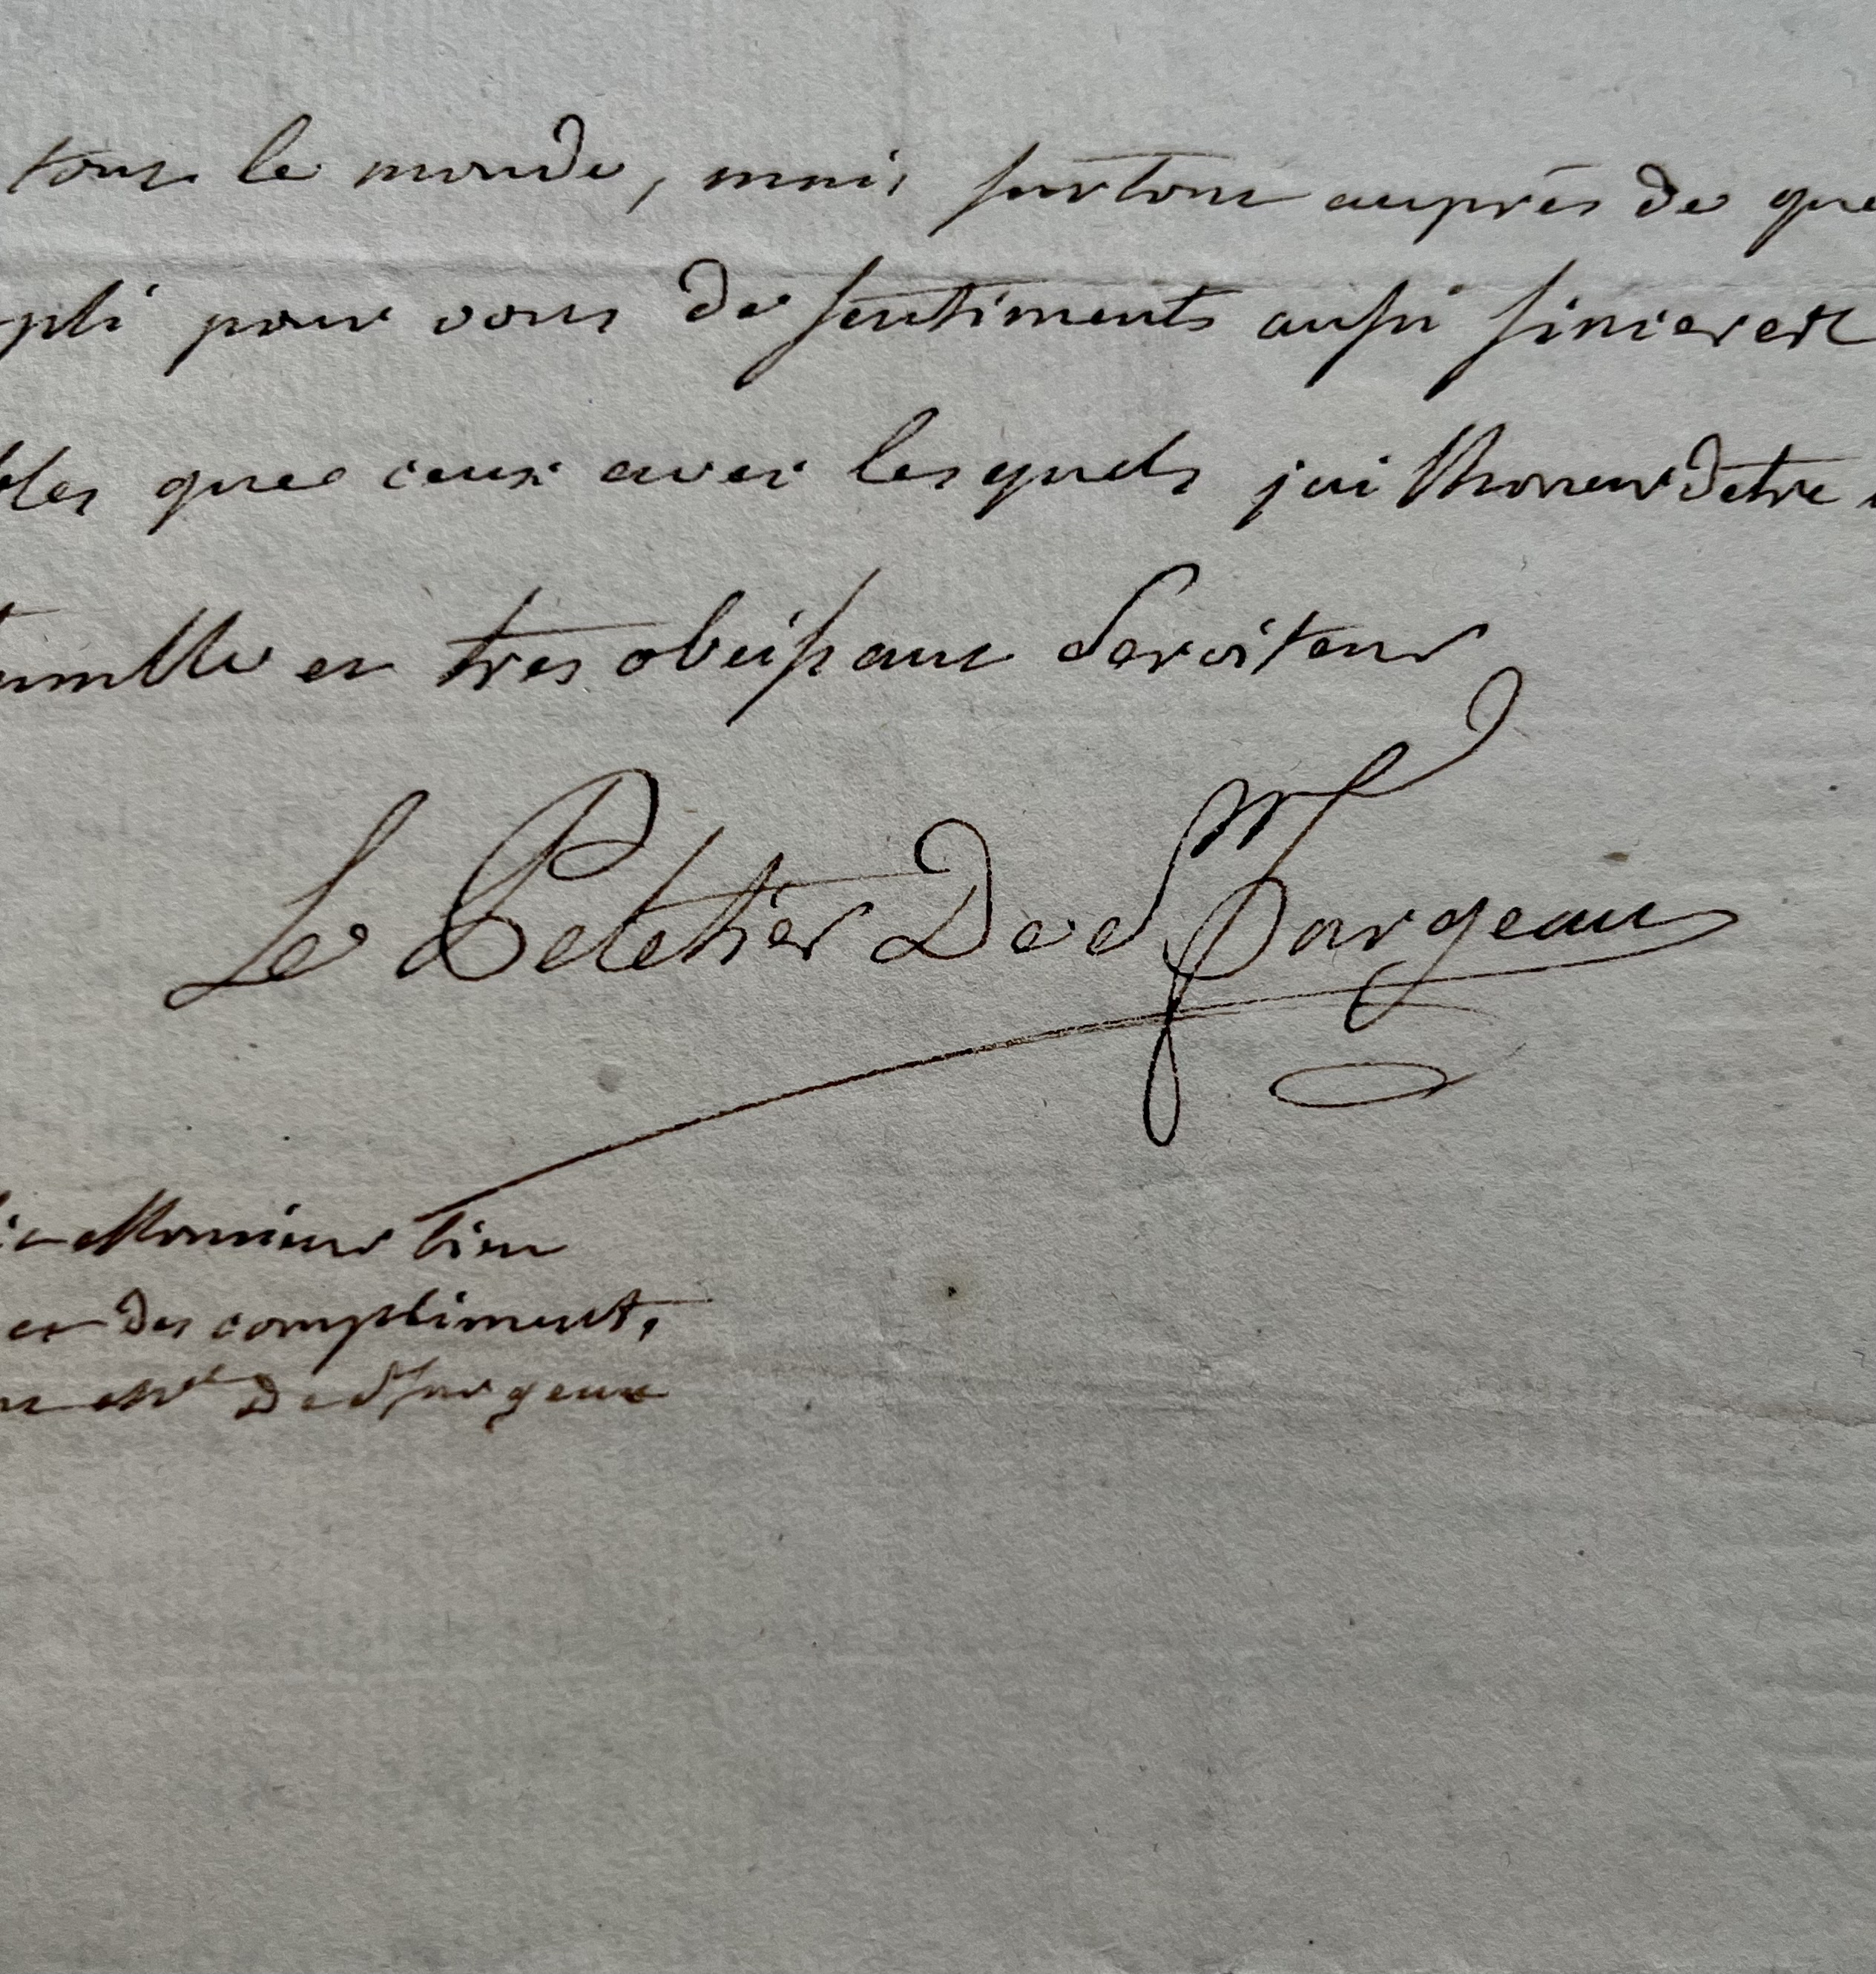 tout le monde, mais surtout auprès de que
pli pour vous de sentiments aussi sinceres et
bles que ceux avec lesquels jai lhoneur detre
umble et tres obeissant Serviteur
Le Peletier De St fargeau
Monsieur bien
et des compliments
De St fargeau